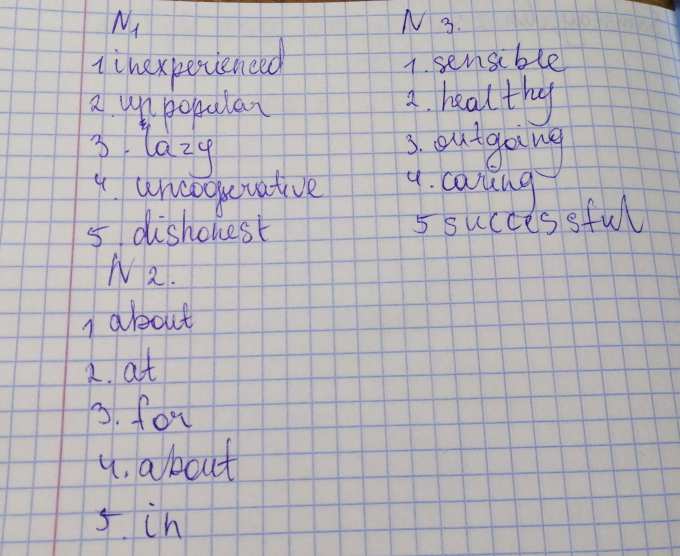 N1
1 inexperienced
2. unpopular
3. lazy
4. uncooperative
5. dishonest
N 2.
1 about
2. at
3. for
4. about
5. in
N 3.
1. sensible
2. healthy
3. outgoing
4. caring
5 successful